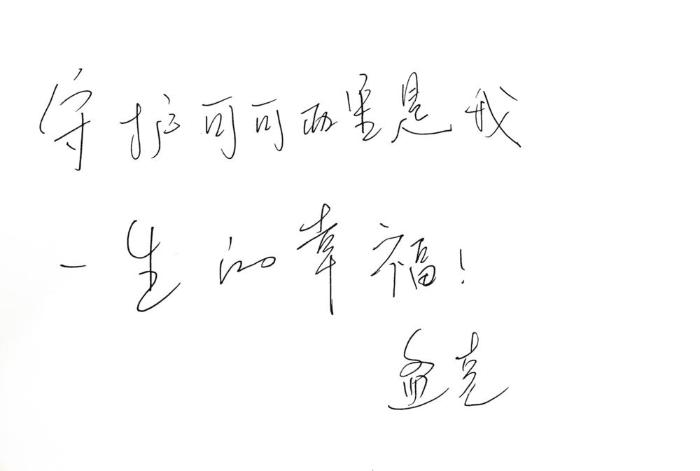 守护可可西里是我
一生的幸福!
孟克